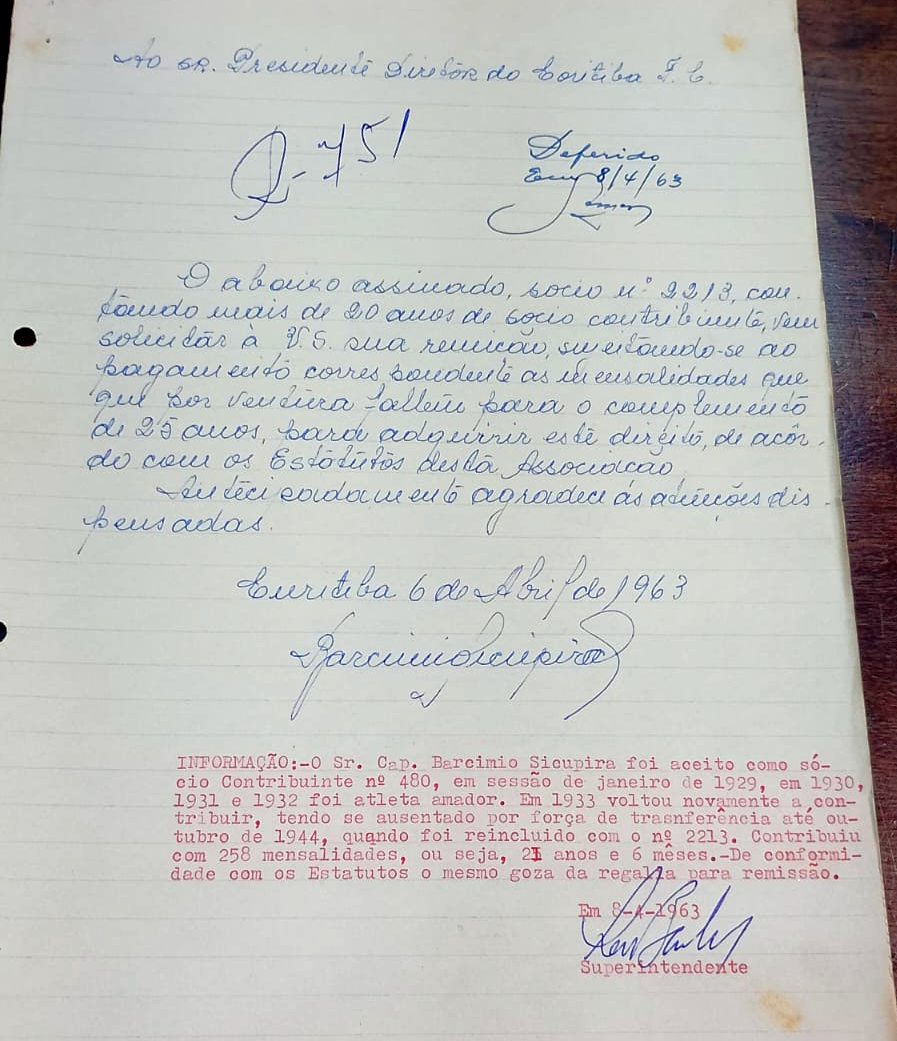 Ao SR. Presidente Diretôr do Coritiba F. C.
R-751
Deferido
Em 8/4/63
O abaixo assinado, socio nº 2213, con-
tando mais de 20 anos de socio contribuinte, vem
solicitár à V.S. sua remição, sugeitando-se ao
pagamento correspondente as mensalidades que
que por ventura faltem para o complemento
de 25 anos, para adquirir este direito, de acôr-
do com os Estatutos desta Associação
Antecipadamente agradece ás atenções dis-
pensadas.
Curitiba 6 de Abril de 1963
Barcimio Sicupira
INFORMAÇÃO:-O Sr. Cap. Barcimio Sicupira foi aceito como só-
cio Contribuinte nº 480, em sessão de janeiro de 1929, em 1930,
1931 e 1932 foi atleta amador. Em 1933 voltou novamente a con-
tribuir, tendo se ausentado por força de trasnferência até ou-
tubro de 1944, quando foi reincluido com o nº 2213. Contribuiu
com 258 mensalidades, ou seja, 21 anos e 6 mêses.-De conformi-
dade com os Estatutos o mesmo goza da regalia para remissão.
Em 8-4-1963
Superintendente